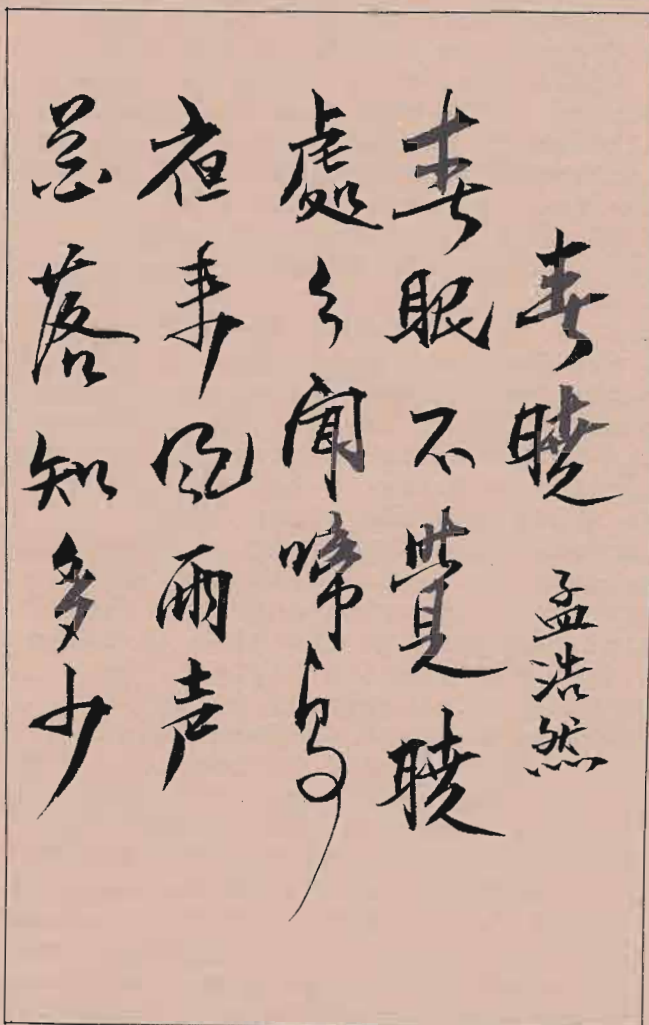 春曉 孟浩然
春眠不覺曉
處々聞啼鳥
夜来風雨声
花落知多少